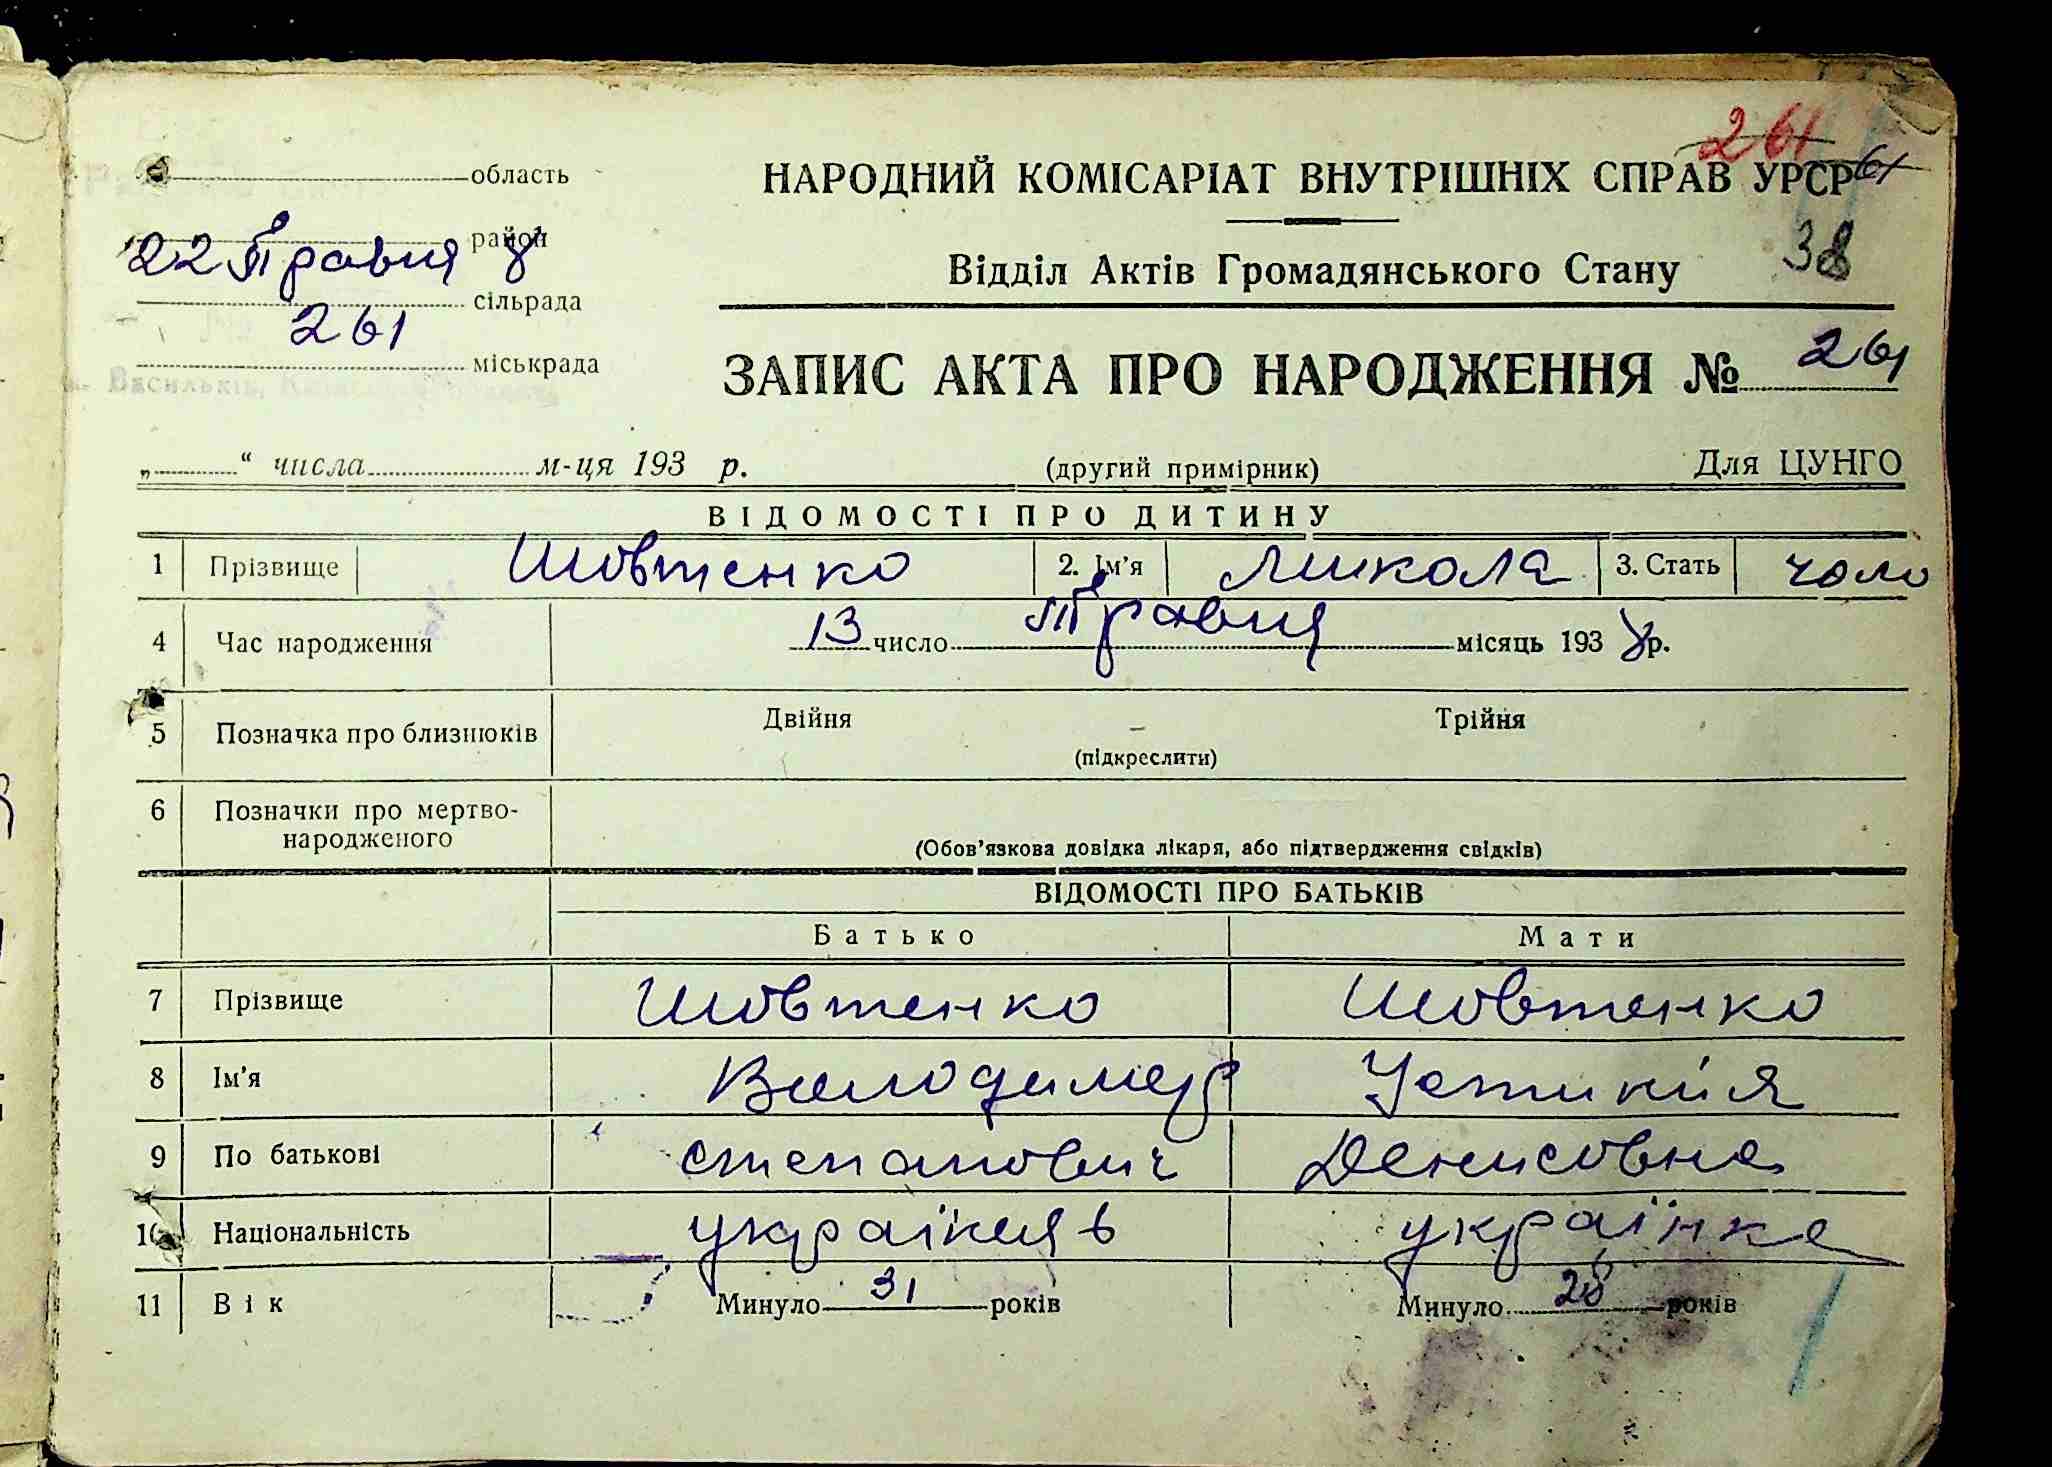 261
область
НАРОДНИЙ КОМІСАРІАТ ВНУТРІШНІХ СПРАВ УРСР 61
район
22 Травня 8
38
Відділ Актів Громадянського Стану
сільрада
261
міськрада
ЗАПИС АКТА ПРО НАРОДЖЕННЯ № 261
м. Васильків,
„ “ числа м-ця 193 р. (другий примірник) Для ЦУНГО
ВІДОМОСТІ ПРО ДИТИНУ
1 Прізвище Шовтенко 2. Ім'я Микола 3. Стать чоло
4 Час народження 13 число Травня місяць 193 8 р.
5 Позначка про близнюків Двійня – Трійня
(підкреслити)
6 Позначки про мертво-
народженого
(Обов'язкова довідка лікаря, або підтвердження свідків)
ВІДОМОСТІ ПРО БАТЬКІВ
Батько Мати
7 Прізвище Шовтенко Шовтенко
8 Ім'я Володимер Устинія
9 По батькові Степанович Денисовна
10 Національність українєв українка
11 Вік Минуло 31 років Минуло 28 років